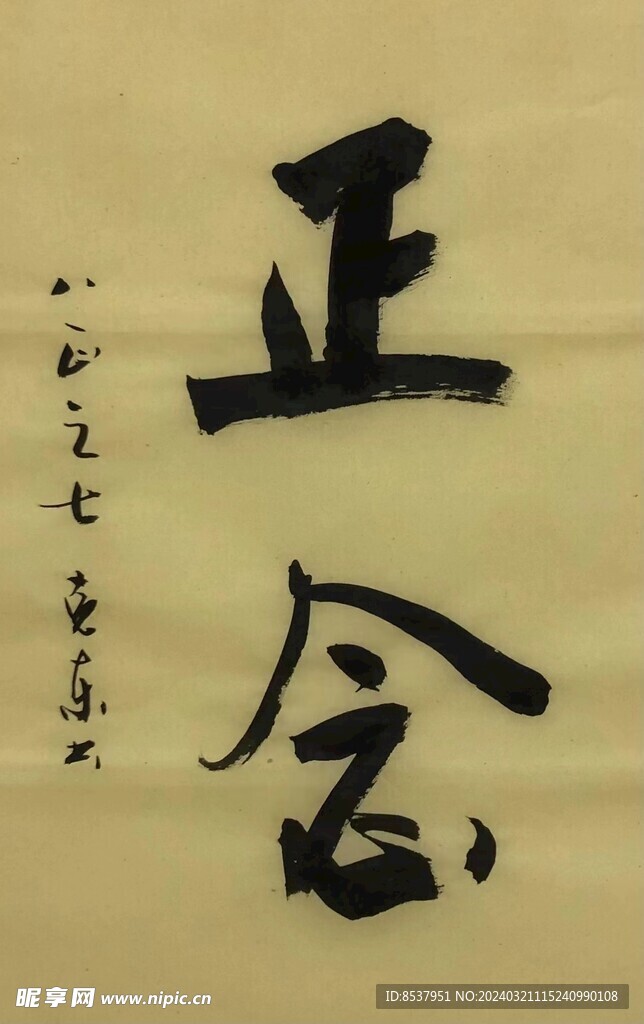 正念
八正之七 克东书
昵享网 www.nipic.cn
ID:8537951 NO:20240321115240990108